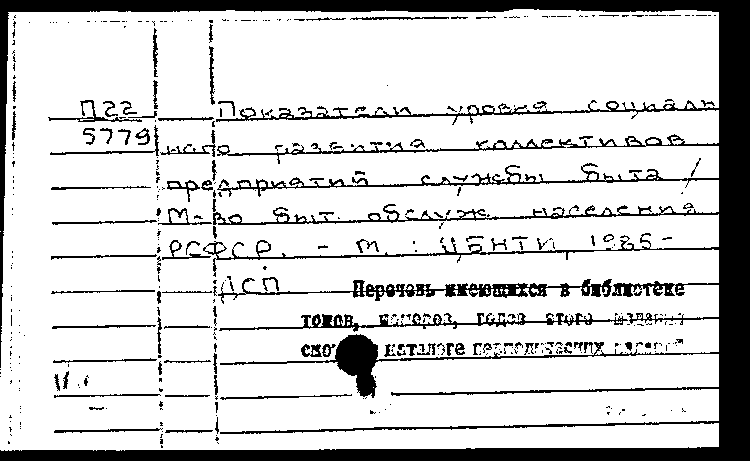 П22
5779
Показатели уровня социаль
ного развития коллективов
предприятий службы быта /
М-во быт. обслуж. населения
РСФСР. - М. : ЦБНТИ, 1985-
ДСП
Перечень имеющихся в библиотеке
томов, номеров, годов этого издания
смо каталоге периодических изданий